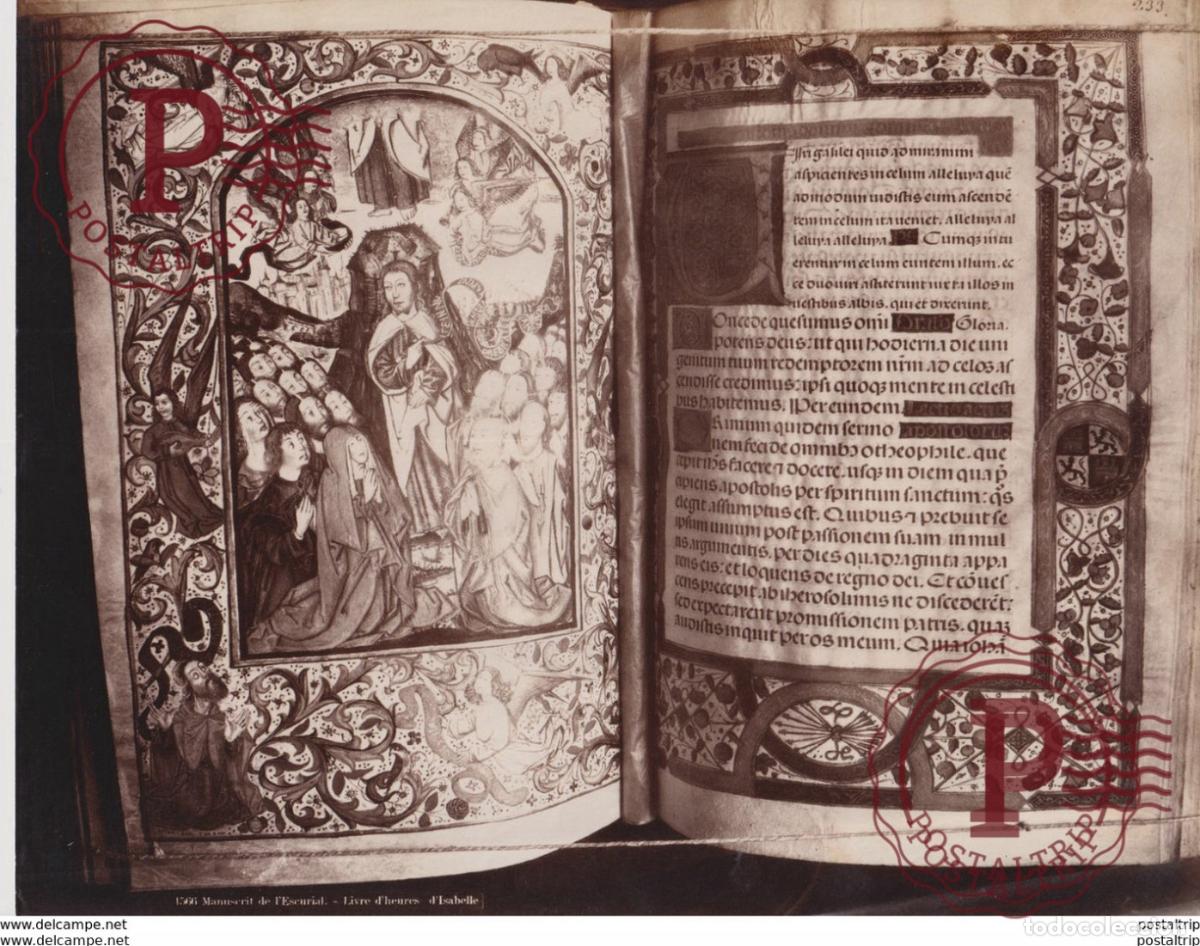 233
Viri galilei quid admiramini
aspicientes in celum alleluya quē
admodum uidistis eum ascendē
tem in celum ita ueniet. alleluya al
leluya alleluya. Cumq; intu
erentur in celum euntem illum. ec
ce duo uiri astiterunt iuxta illos in
uestibus albis. qui et dixerunt.
Oncede quesumus om̄i Gloria.
potens deus: ut qui hodierna die uni
genitum tuum redemptorem nr̄m ad celos as
cendisse credimus: ipsi quoq; mente in celesti
bus habitemus. Per eundem.
Rimum quidem sermo apostolorū
nem feci de omnibꝫ o theophile. que
cepit ihs facere ⁊ docere. usq; in diem qua p̄
cipiens apostolis per spiritum sanctum: q̄s
elegit assumptus est. Quibus ⁊ prebuit se
ipsum uiuum post passionem suam in mul
tis argumentis. per dies quadraginta appa
rens eis: et loquens de regno dei. Et cōues
cens precepit ab iherosolimis ne discederēt:
sed expectarent promissionem patris. quaȝ
audistis inquit per os meum. Quia iohā
1566 Manuscrit de l'Escurial. - Livre d'heures d'Isabelle
P
POSTALTRIP
P
POSTALTRIP
www.delcampe.net
postaltrip
todocoleccion
www.delcampe.net
postaltrip